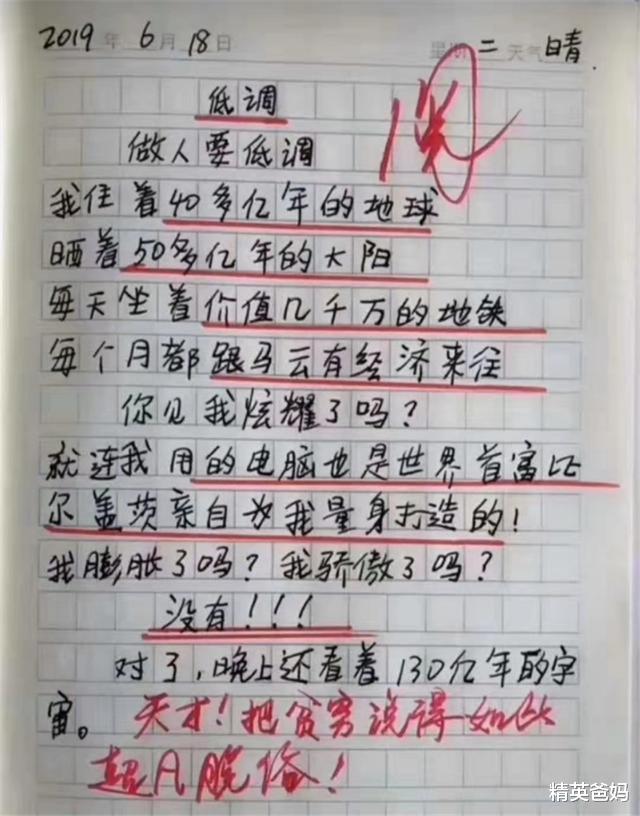 2019年6月18日 星期二 天气晴
低调
阅
做人要低调
我住着40多亿年的地球
晒着50多亿年的太阳
每天坐着价值几千万的地铁
每个月都跟马云有经济来往
你见我炫耀了吗?
就连我用的电脑也是世界首富比
尔盖茨亲自为我量身打造的!
我膨胀了吗?我骄傲了吗?
没有!!!
对了,晚上还看着130亿年的宇
宙。天才!把贫穷说得如此
超凡脱俗!
精英爸妈